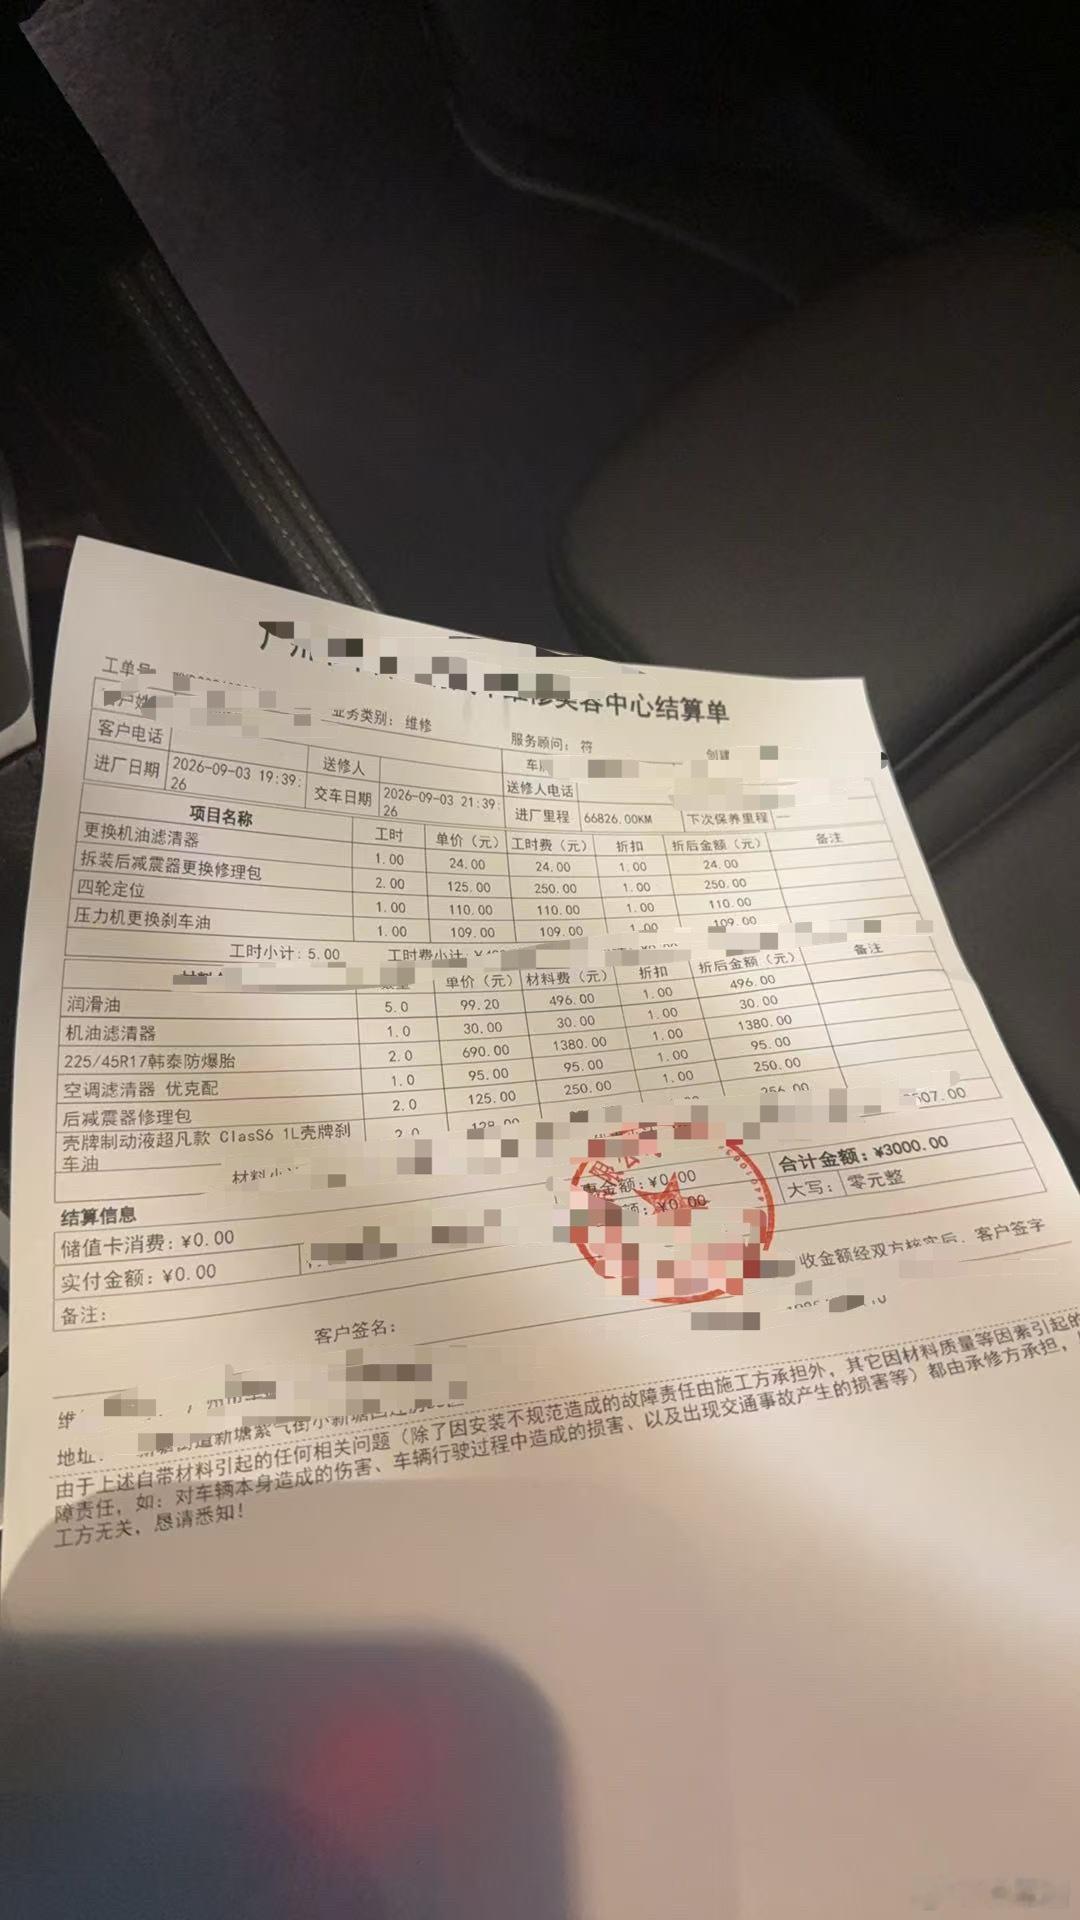 中心结算单
工单号
业务类别: 维修
服务顾问: 符
创建
客户姓
客户电话
送修人
送修人电话
进厂日期 2026-09-03 19:39:26 交车日期 2026-09-03 21:39:26 进厂里程 66826.00KM 下次保养里程 —
项目名称 工时 单价（元） 工时费（元） 折扣 折后金额（元） 备注
更换机油滤清器 1.00 24.00 24.00 1.00 24.00
拆装后减震器更换修理包 2.00 125.00 250.00 1.00 250.00
四轮定位 1.00 110.00 110.00 1.00 110.00
压力机更换刹车油 1.00 109.00 109.00 1.00 109.00
工时小计: 5.00 工时费小计:
单价（元） 材料费（元） 折扣 折后金额（元） 备注
润滑油 5.0 99.20 496.00 1.00 496.00
机油滤清器 1.0 30.00 30.00 1.00 30.00
225/45R17韩泰防爆胎 2.0 690.00 1380.00 1.00 1380.00
空调滤清器 优克配 1.0 95.00 95.00 1.00 95.00
后减震器修理包 2.0 125.00 250.00 1.00 250.00
壳牌制动液超凡款 ClasS6 1L壳牌刹车油 2.0 128.00 256.00
材料小
507.00
合计金额: ¥3000.00
惠金额: ¥0.00
额: ¥0.00
大写: 零元整
结算信息
储值卡消费: ¥0.00
实付金额: ¥0.00
备注:
收金额经双方核实后，客户签字
客户签名:
维
地址:
新塘紫气街小新塘
由于上述自带材料引起的任何相关问题（除了因安装不规范造成的故障责任由施工方承担外，其它因材料质量等因素引起的
障责任，如: 对车辆本身造成的伤害、车辆行驶过程中造成的损害、以及出现交通事故产生的损害等）都由承修方承担，
工方无关，恳请悉知!